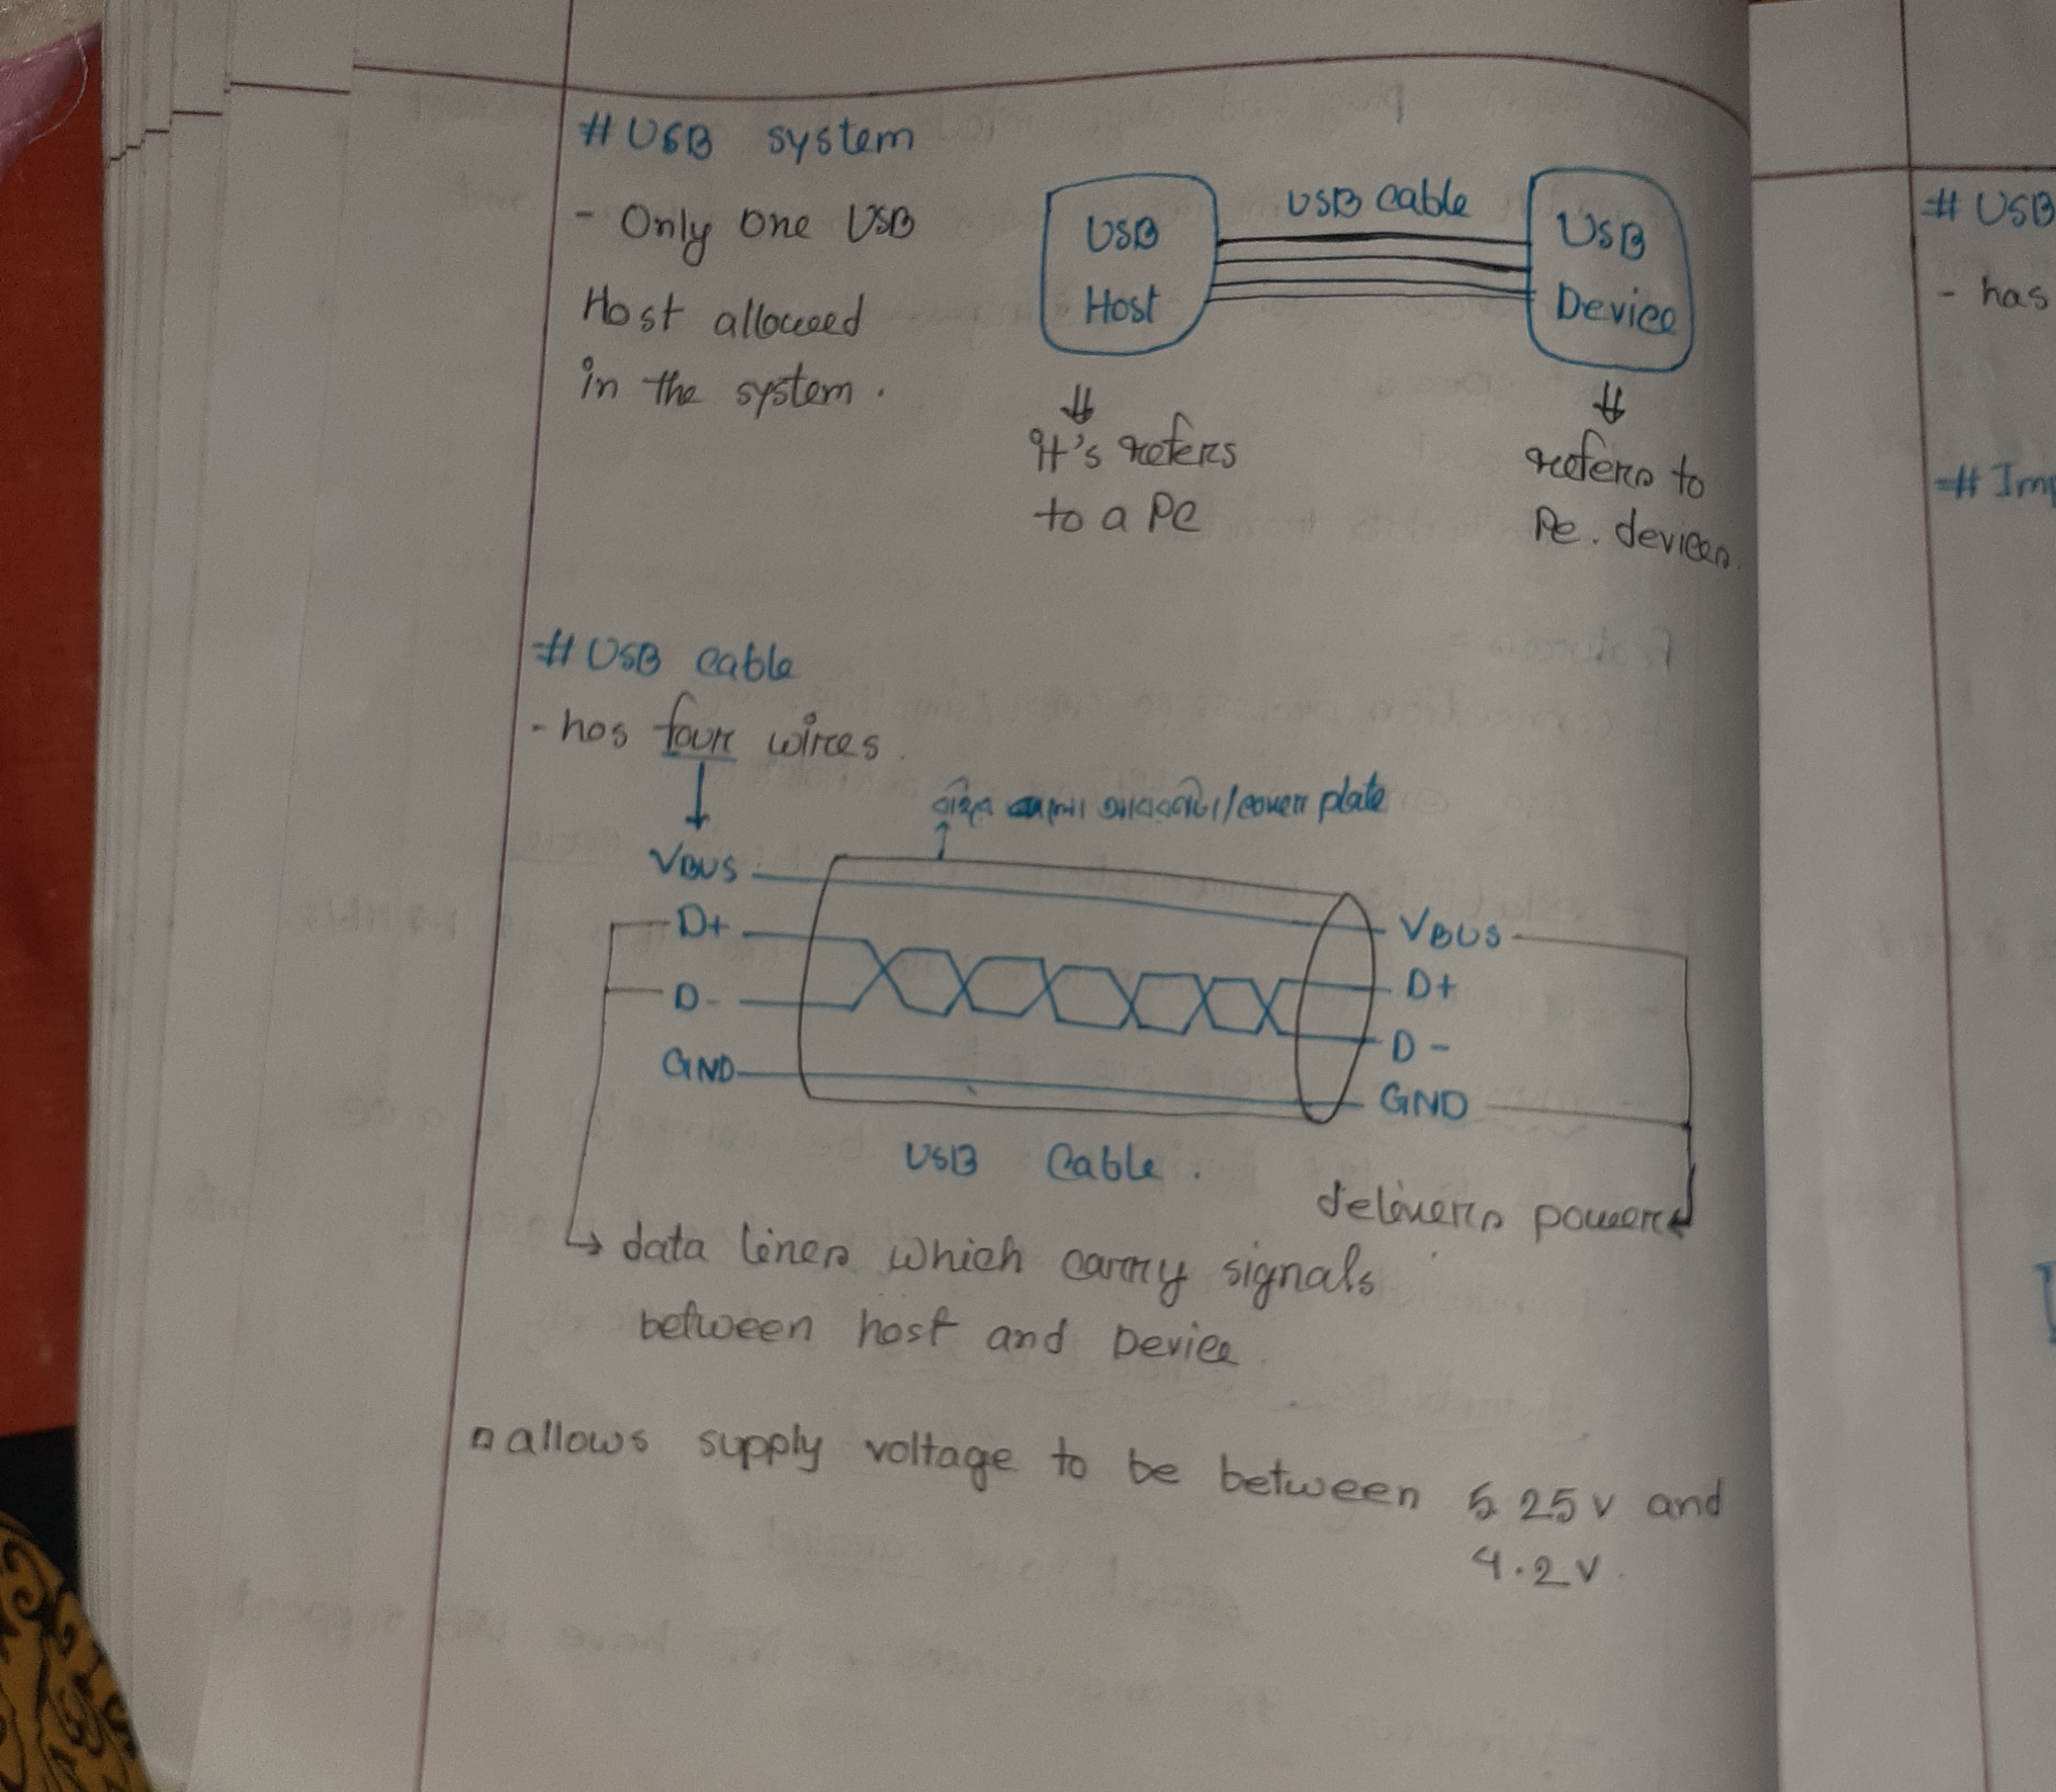 # USB system
- Only one USB
Host allowed
in the system.
USB
Host
USB cable
USB
Device
It's refers
to a PC
refers to
Pe. devices.
# USB cable
- has four wires.
/cover plate
VBUS
D+
D-
GND
VBUS
D+
D-
GND
USB Cable.
delivers power
data lines which carry signals
between host and Device.
allows supply voltage to be between 5.25v and
4.2v.
# USB
- has
# Imp